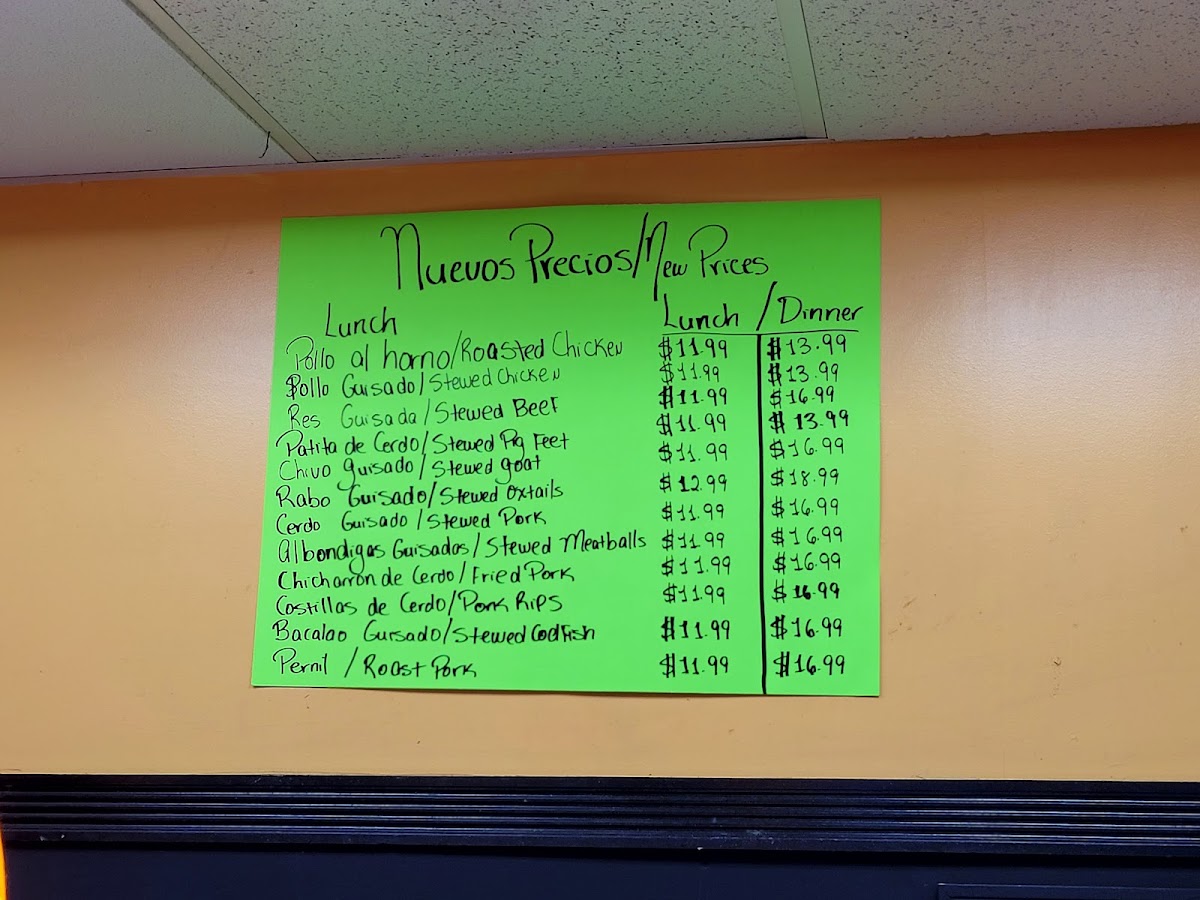 Nuevos Precios/New Prices
Lunch Lunch / Dinner
Pollo al horno/Roasted Chicken $11.99 $13.99
Pollo Guisado/Stewed Chicken $11.99 $13.99
Res Guisada/Stewed Beef $11.99 $16.99
Patita de Cerdo/Stewed Pig Feet $11.99 $13.99
Chivo guisado/Stewed goat $11.99 $16.99
Rabo Guisado/Stewed Oxtails $12.99 $18.99
Cerdo Guisado/Stewed Pork $11.99 $16.99
Albondigas Guisadas/Stewed Meatballs $11.99 $16.99
Chicharron de Cerdo/Fried Pork $11.99 $16.99
Costillas de Cerdo/Pork Rips $11.99 $16.99
Bacalao Guisado/Stewed Codfish $11.99 $16.99
Pernil /Roast Pork $11.99 $16.99